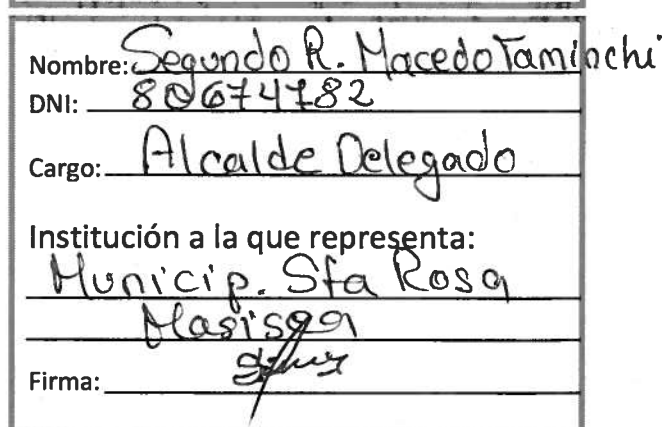 Nombre: Segundo R. Macedo Taminchi
DNI: 80674782
Cargo: Alcalde Delegado
Institución a la que representa:
Municip. Sta Rosa
Masisea
Firma: